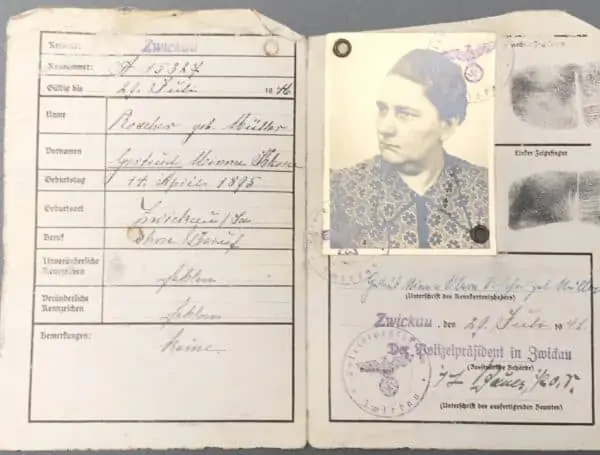 Kennort: Zwickau
Kennnummer: A 15327
Gültig bis 29. Juli 1946
Name Roscher geb. Müller
Vornamen Gertrud Minna
Geburtstag 14. April 1895
Geburtsort Zwickau/Sa
Beruf ohne Beruf
Unveränderliche Kennzeichen fehlen
Veränderliche Kennzeichen fehlen
Bemerkungen: Keine.
Linker Zeigefinger
Müller
(Unterschrift des Kennkarteninhabers)
Zwickau, den 29. Juli 1941
Der Polizeipräsident in Zwickau
(Ausstellende Behörde)
(Unterschrift des ausfertigenden Beamten)
Zwickau